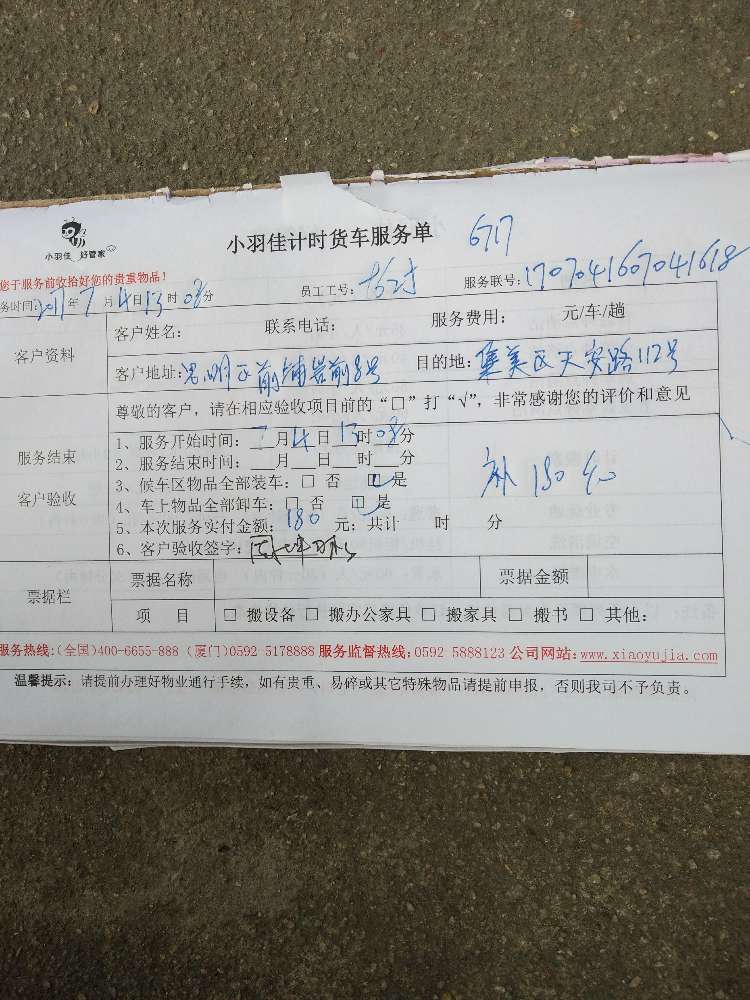 小羽佳 好管家
小羽佳计时货车服务单 6717
您于服务前收拾好您的贵重物品!
务时间: 年 7 月 4 日 13 时 08 分 员工工号: 服务联号: 1707041607041618
客户资料
客户姓名: 联系电话: 服务费用: 元/车/趟
客户地址: 思明区前埔岩前8号 目的地: 集美区天安路112号
尊敬的客户, 请在相应验收项目前的“□”打“√”, 非常感谢您的评价和意见
服务结束
客户验收
1、服务开始时间: 7 月 4 日 13 时 08 分
2、服务结束时间: 月 日 时 分
3、候车区物品全部装车: □ 否 □ 是
4、车上物品全部卸车: □ 否 □ 是
补180
5、本次服务实付金额: 180 元; 共计 时 分
6、客户验收签字:
票据栏
票据名称 票据金额
项 目 □ 搬设备 □ 搬办公家具 □ 搬家具 □ 搬书 □ 其他:
服务热线:(全国)400-6655-888 (厦门)0592-5178888 服务监督热线:0592 5888123 公司网站:www.xiaoyujia.com
温馨提示: 请提前办理好物业通行手续, 如有贵重、易碎或其它特殊物品请提前申报, 否则我司不予负责。